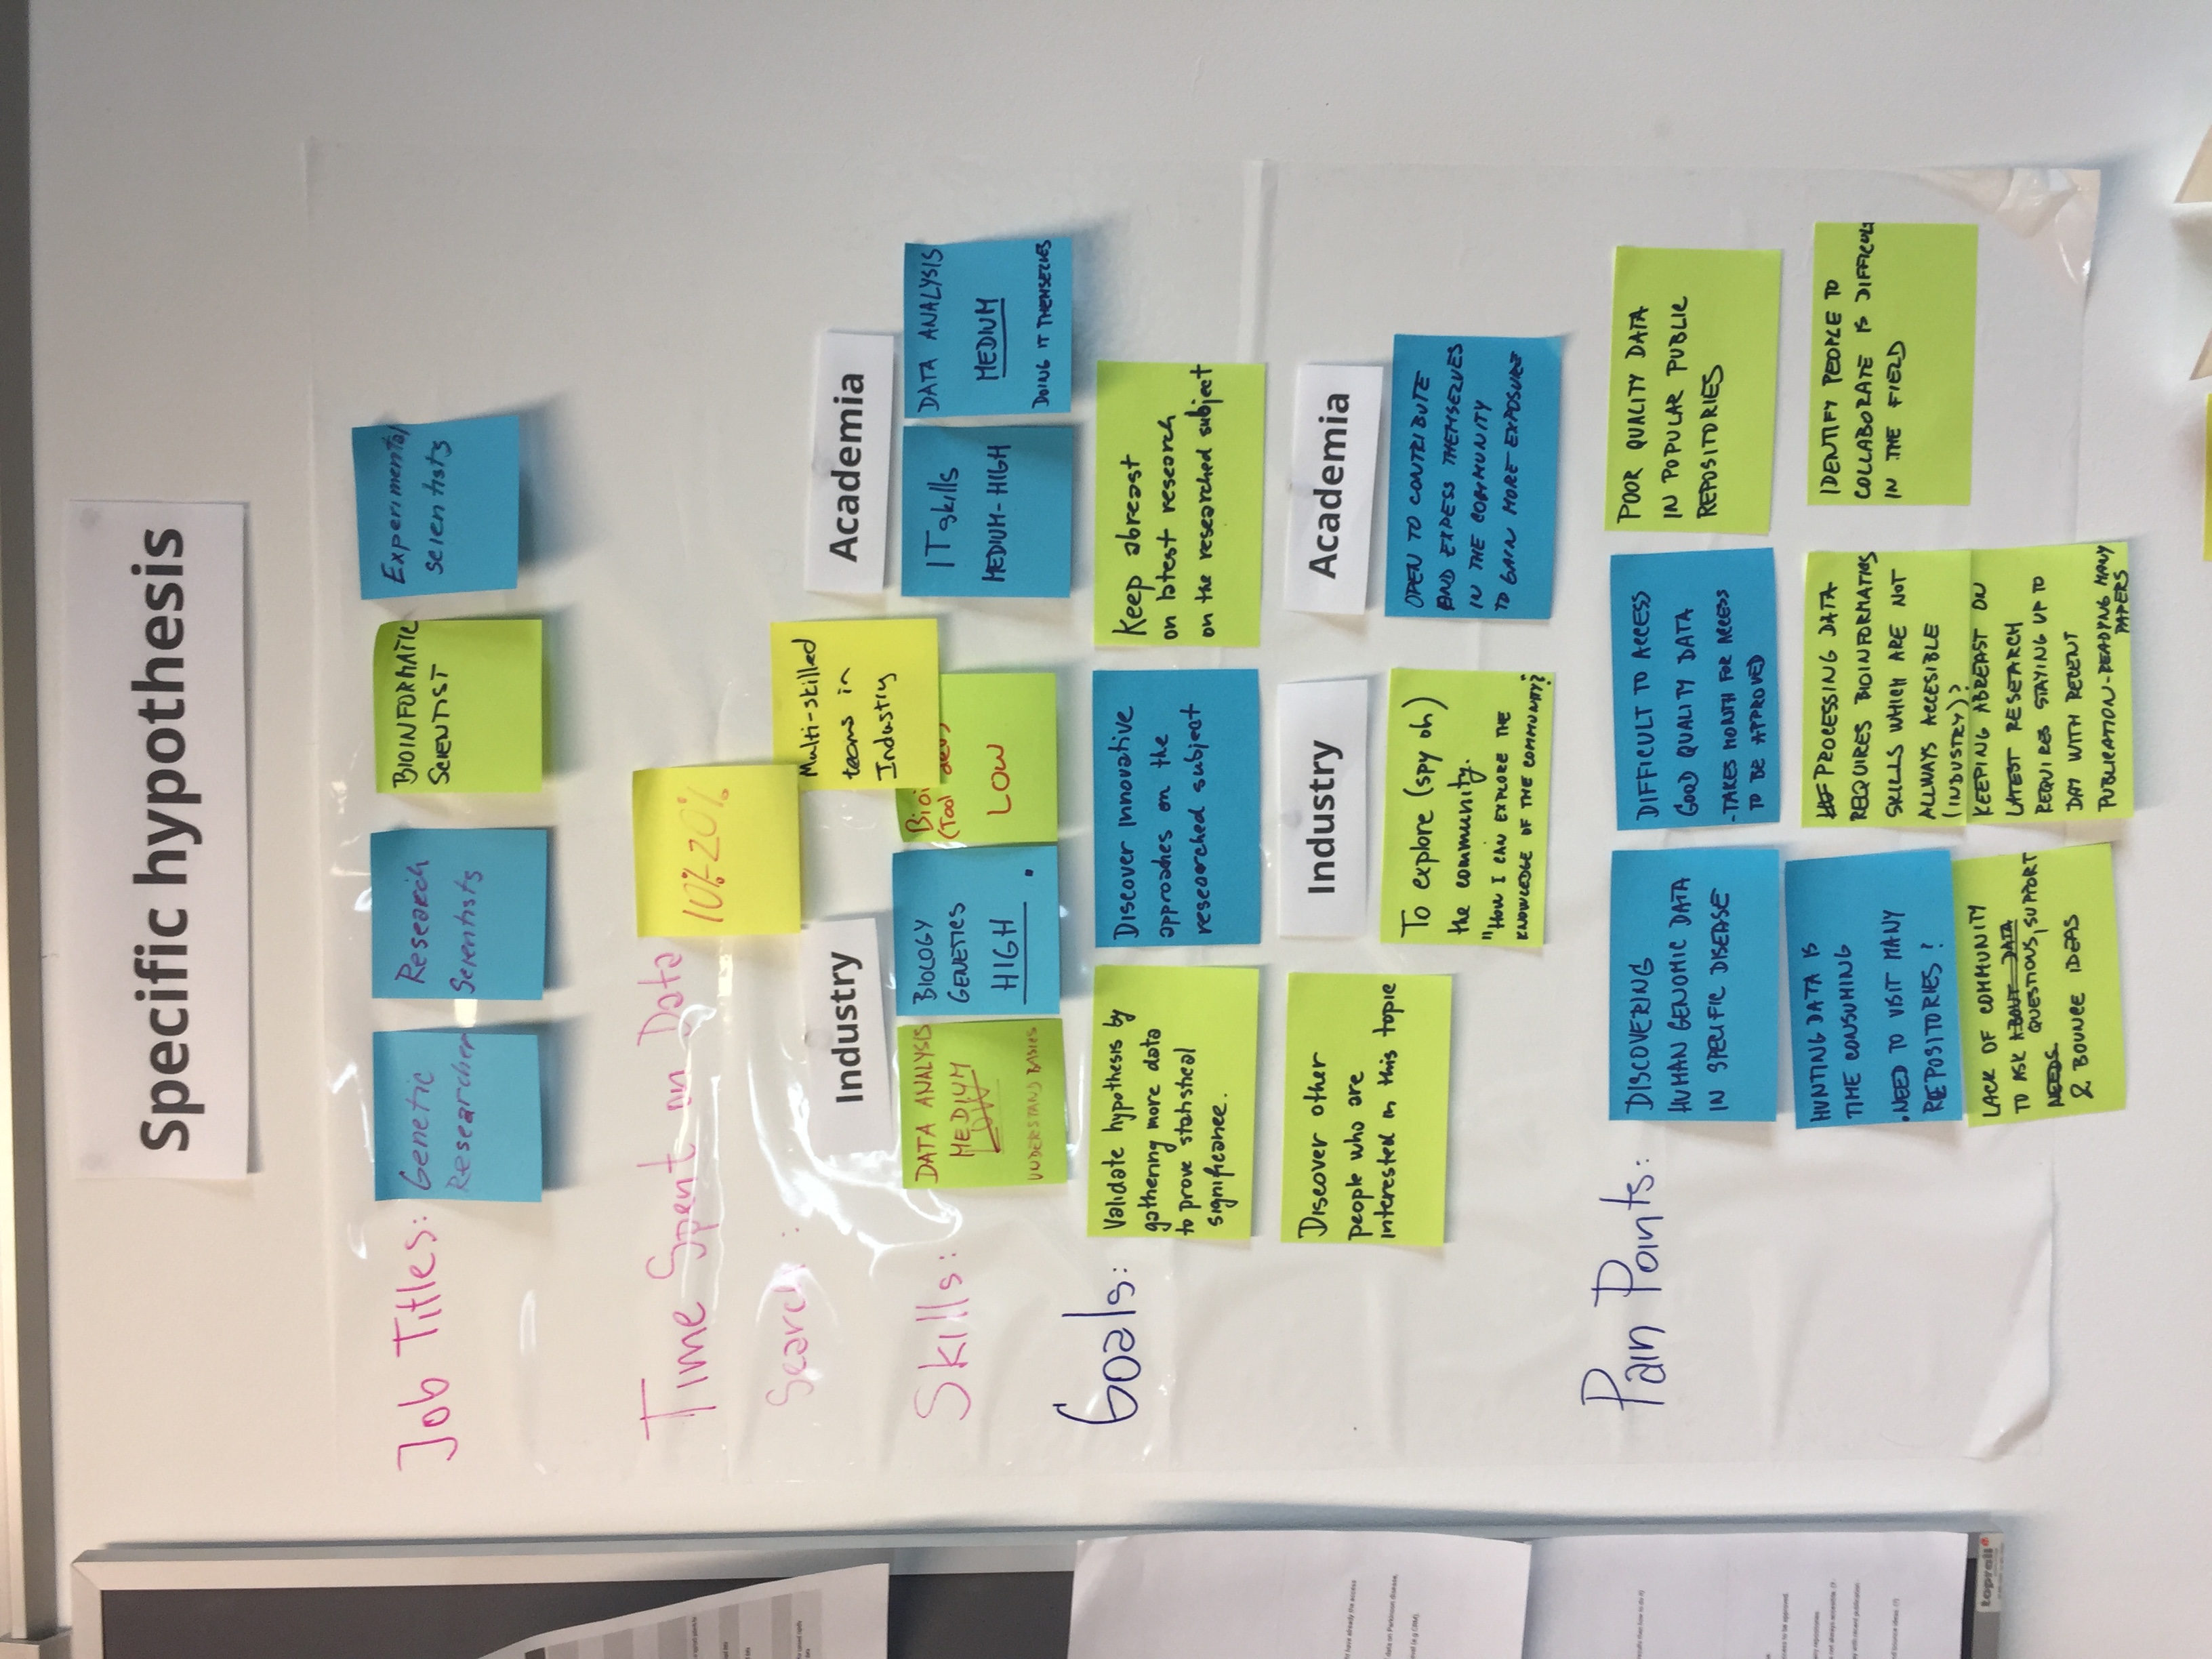 Specific hypothesis
Job Titles:
Genetic
Researcher
Research
Scientists
BIOINFORMATIC
SCIENTIST
Experimental
scientists
Time Spent on Data
Search :
10%-20%
Multi-skilled
teams in
Industry
Industry
Academia
Skills:
DATA ANALYSIS
MEDIUM
LOW
UNDERSTAND BASICS
BIOLOGY
GENETICS
HIGH
(Tool dev)
LOW
IT skills
MEDIUM-HIGH
DATA ANALYSIS
MEDIUM
DOING IT THEMSELVES
Goals:
Validate hypothesis by
gathering more data
to prove statistical
significance.
Discover innovative
approaches on the
researched subject
Keep abreast
on latest research
on the researched subject
Discover other
people who are
interested in this topic
Industry
To explore (spy on)
the community.
"HOW I CAN EXPLORE THE
KNOWLEDGE OF THE COMMUNITY?"
Academia
OPEN TO CONTRIBUTE
AND EXPESS THEMSELVES
IN THE COMMUNITY
TO GAIN MORE EXPOSURE
Pain Points:
DISCOVERING
HUMAN GENOMIC DATA
IN SPECIFIC DISEASE
DIFFICULT TO ACCESS
GOOD QUALITY DATA
-TAKES MONTH FOR ACCESS
TO BE APPROVED
POOR QUALITY DATA
IN POPULAR PUBLIC
REPOSITORIES
HUNTING DATA IS
TIME CONSUMING
.NEED TO VISIT MANY
REPOSITORIES ?
PROCESSING DATA
REQUIRES BIOINFORMATICS
SKILLS WHICH ARE NOT
ALLWAYS ACCESIBLE
(INDUSTRY)?
IDENTIFY PEOPLE TO
COLLABORATE IS DIFFICULT
IN THE FIELD
LACK OF COMMUNITY
TO ASK ABOUT DATA
QUESTIONS, SUPPORT
NEEDS
& BOUNCE IDEAS
KEEPING ABREAST ON
LATEST RESEARCH
REQUIRES STAYING UP TO
DAY WITH RECENT
PUBLICATION-READYNG MANY
PAPERS
toprail